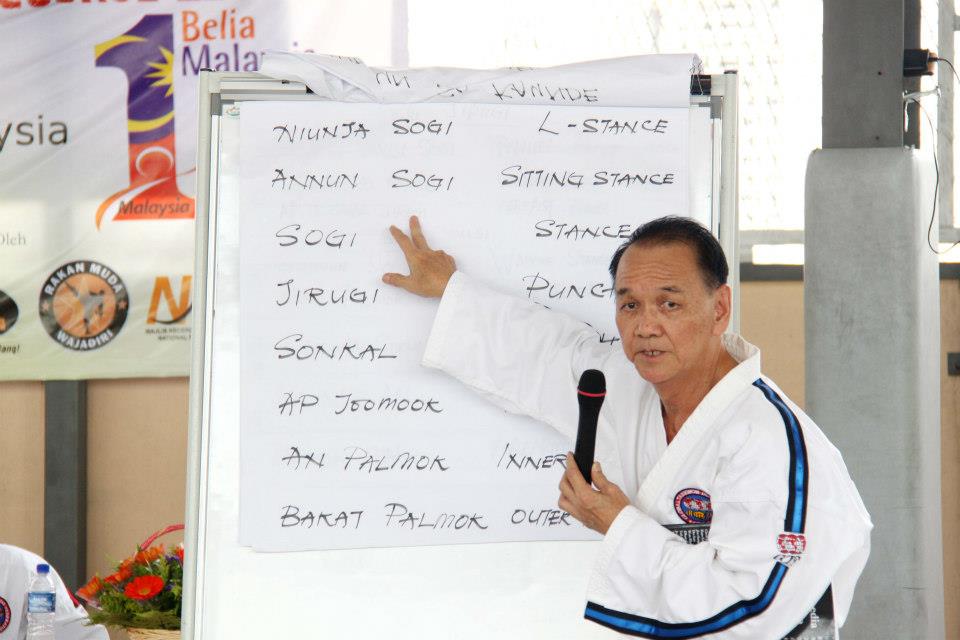 Belia
Malaysia
1
ysia
Malaysia
Oleh
RAKAN MUDA
WAJADIRI
NIUNJA SOGI L-STANCE
ANNUN SOGI SITTING STANCE
SOGI STANCE
JIRUGI PUNCH
SONKAL
AP JOOMOOK
AN PALMOK INNER
BAKAT PALMOK OUTER